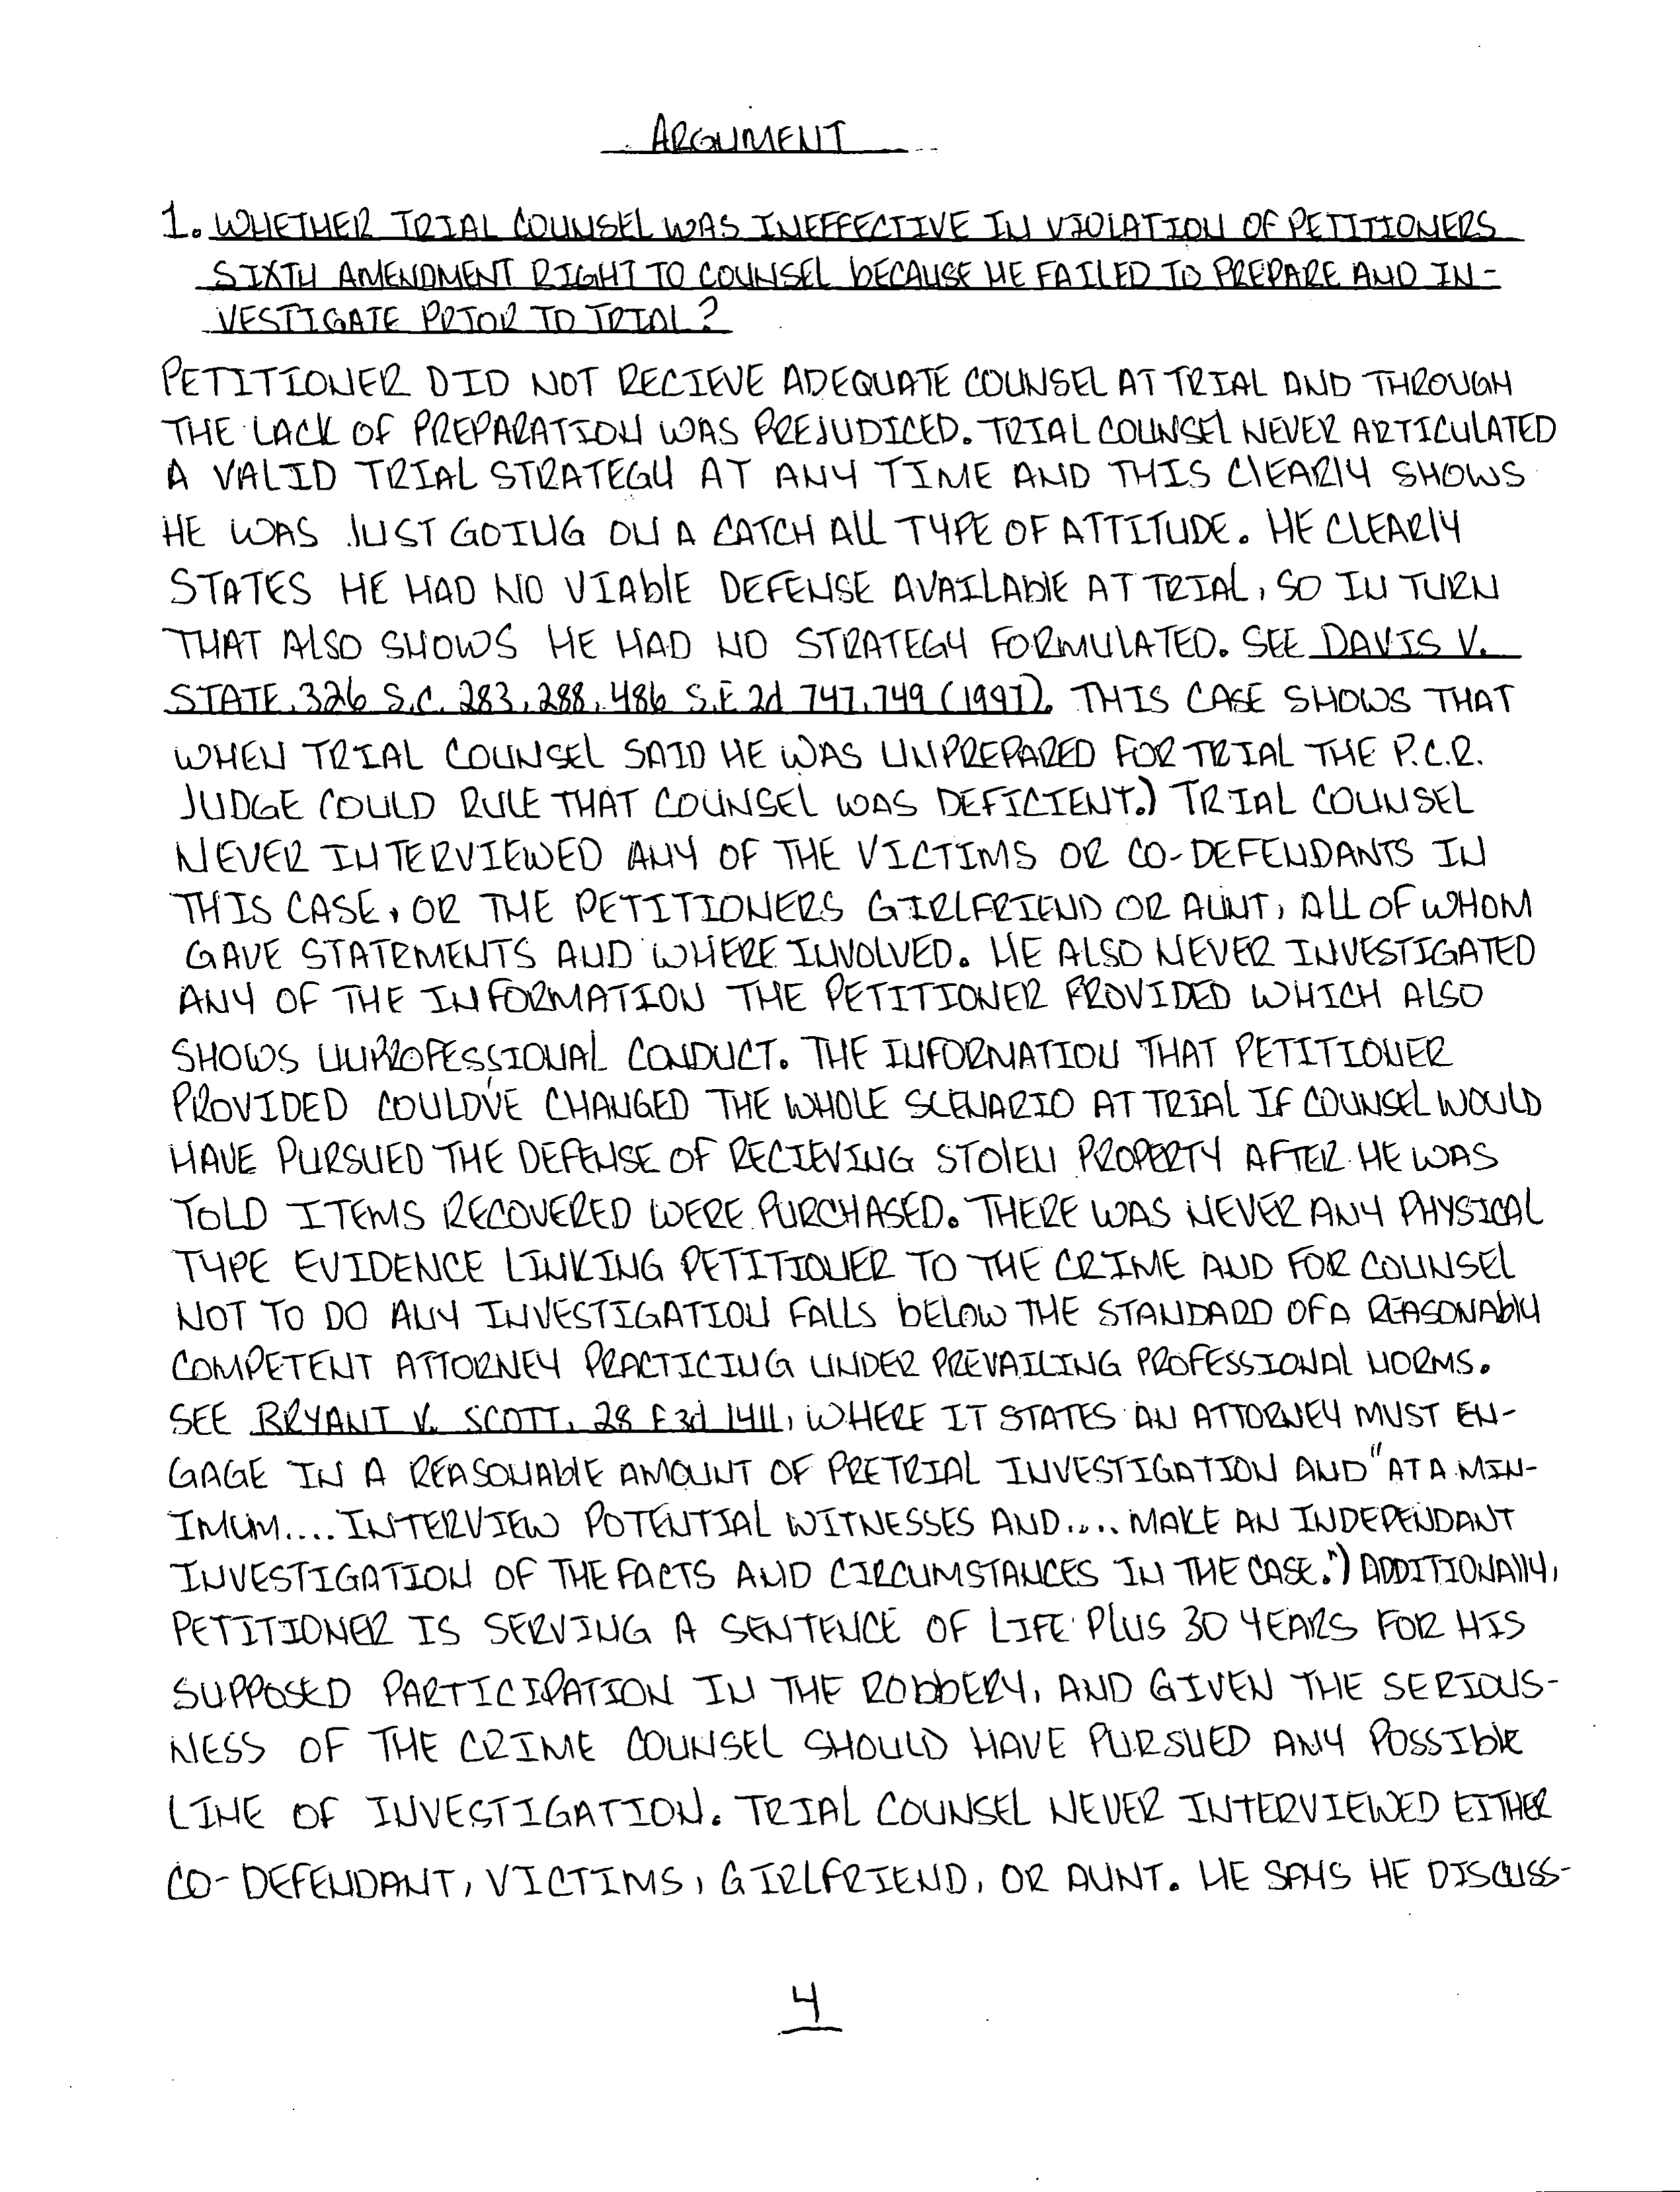 ARGUMENT
1. WHETHER TRIAL COUNSEL WAS INEFFECTIVE IN VIOLATION OF PETITIONERS
SIXTH AMENDMENT RIGHT TO COUNSEL BECAUSE HE FAILED TO PREPARE AND IN-
VESTIGATE PRIOR TO TRIAL?
PETITIONER DID NOT RECIEVE ADEQUATE COUNSEL AT TRIAL AND THROUGH
THE LACK OF PREPARATION WAS PREJUDICED. TRIAL COUNSEL NEVER ARTICULATED
A VALID TRIAL STRATEGY AT ANY TIME AND THIS CLEARLY SHOWS
HE WAS JUST GOING ON A CATCH ALL TYPE OF ATTITUDE. HE CLEARLY
STATES HE HAD NO VIABLE DEFENSE AVAILABLE AT TRIAL, SO IN TURN
THAT ALSO SHOWS HE HAD NO STRATEGY FORMULATED. SEE DAVIS V.
STATE, 326 S.C. 283, 288, 486 S.E 2d 747, 749 (1997). THIS CASE SHOWS THAT
WHEN TRIAL COUNSEL SAID HE WAS UNPREPARED FOR TRIAL THE P.C.R.
JUDGE COULD RULE THAT COUNSEL WAS DEFICIENT.) TRIAL COUNSEL
NEVER INTERVIEWED ANY OF THE VICTIMS OR CO-DEFENDANTS IN
THIS CASE, OR THE PETITIONERS GIRLFRIEND OR AUNT, ALL OF WHOM
GAVE STATEMENTS AND WHERE INVOLVED. HE ALSO NEVER INVESTIGATED
ANY OF THE INFORMATION THE PETITIONER PROVIDED WHICH ALSO
SHOWS UNPROFESSIONAL CONDUCT. THE INFORMATION THAT PETITIONER
PROVIDED COULD'VE CHANGED THE WHOLE SCENARIO AT TRIAL IF COUNSEL WOULD
HAVE PURSUED THE DEFENSE OF RECIEVING STOLEN PROPERTY AFTER HE WAS
TOLD ITEMS RECOVERED WERE PURCHASED. THERE WAS NEVER ANY PHYSICAL
TYPE EVIDENCE LINKING PETITIONER TO THE CRIME AND FOR COUNSEL
NOT TO DO ANY INVESTIGATION FALLS BELOW THE STANDARD OF A REASONABLY
COMPETENT ATTORNEY PRACTICING UNDER PREVAILING PROFESSIONAL NORMS.
SEE BRYANT V. SCOTT, 28 F 3d 1411, WHERE IT STATES AN ATTORNEY MUST EN-
GAGE IN A REASONABLE AMOUNT OF PRETRIAL INVESTIGATION AND "AT A MIN-
IMUM.... INTERVIEW POTENTIAL WITNESSES AND.... MAKE AN INDEPENDANT
INVESTIGATION OF THE FACTS AND CIRCUMSTANCES IN THE CASE.") ADDITIONALLY,
PETITIONER IS SERVING A SENTENCE OF LIFE PLUS 30 YEARS FOR HIS
SUPPOSED PARTICIPATION IN THE ROBBERY, AND GIVEN THE SERIOUS-
NESS OF THE CRIME COUNSEL SHOULD HAVE PURSUED ANY POSSIBLE
LINE OF INVESTIGATION. TRIAL COUNSEL NEVER INTERVIEWED EITHER
CO-DEFENDANT, VICTIMS, GIRLFRIEND, OR AUNT. HE SAYS HE DISCUSS-
4